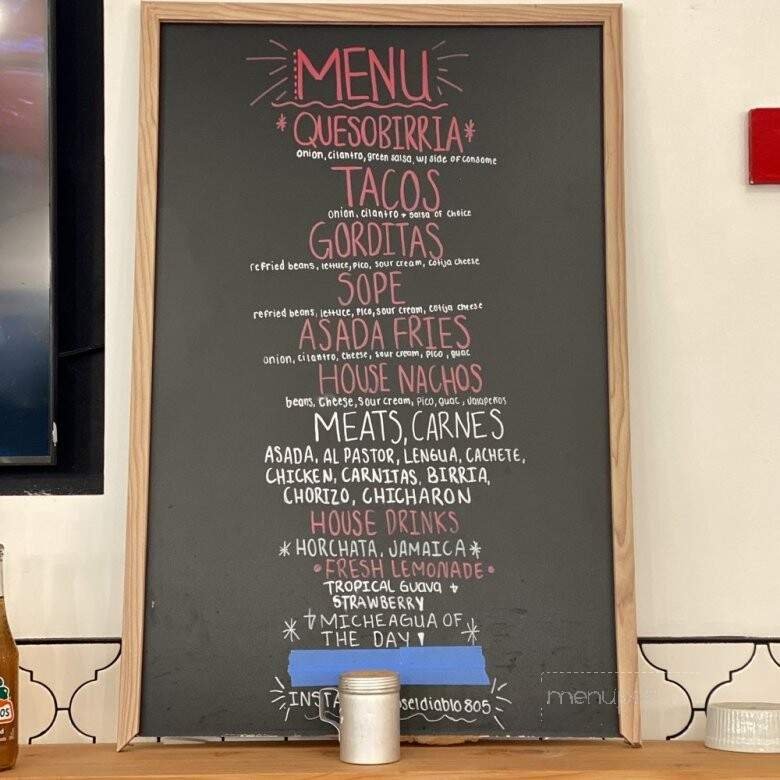 MENU
*QUESOBIRRIA*
onion, cilantro, green salsa, w/ side of consome
TACOS
onion, cilantro + salsa of choice
GORDITAS
refried beans, lettuce, pico, sour cream, cotija cheese
SOPE
refried beans, lettuce, pico, sour cream, cotija cheese
ASADA FRIES
onion, cilantro, cheese, sour cream, pico, guac
HOUSE NACHOS
beans, cheese, sour cream, pico, guac, jalapeños
MEATS, CARNES
ASADA, AL PASTOR, LENGUA, CACHETE,
CHICKEN, CARNITAS, BIRRIA,
CHORIZO, CHICHARON
HOUSE DRINKS
*HORCHATA, JAMAICA*
•FRESH LEMONADE•
TROPICAL Guava +
STRAWBERRY
*+MICHEAGUA OF
THE DAY!*
seldiablo805